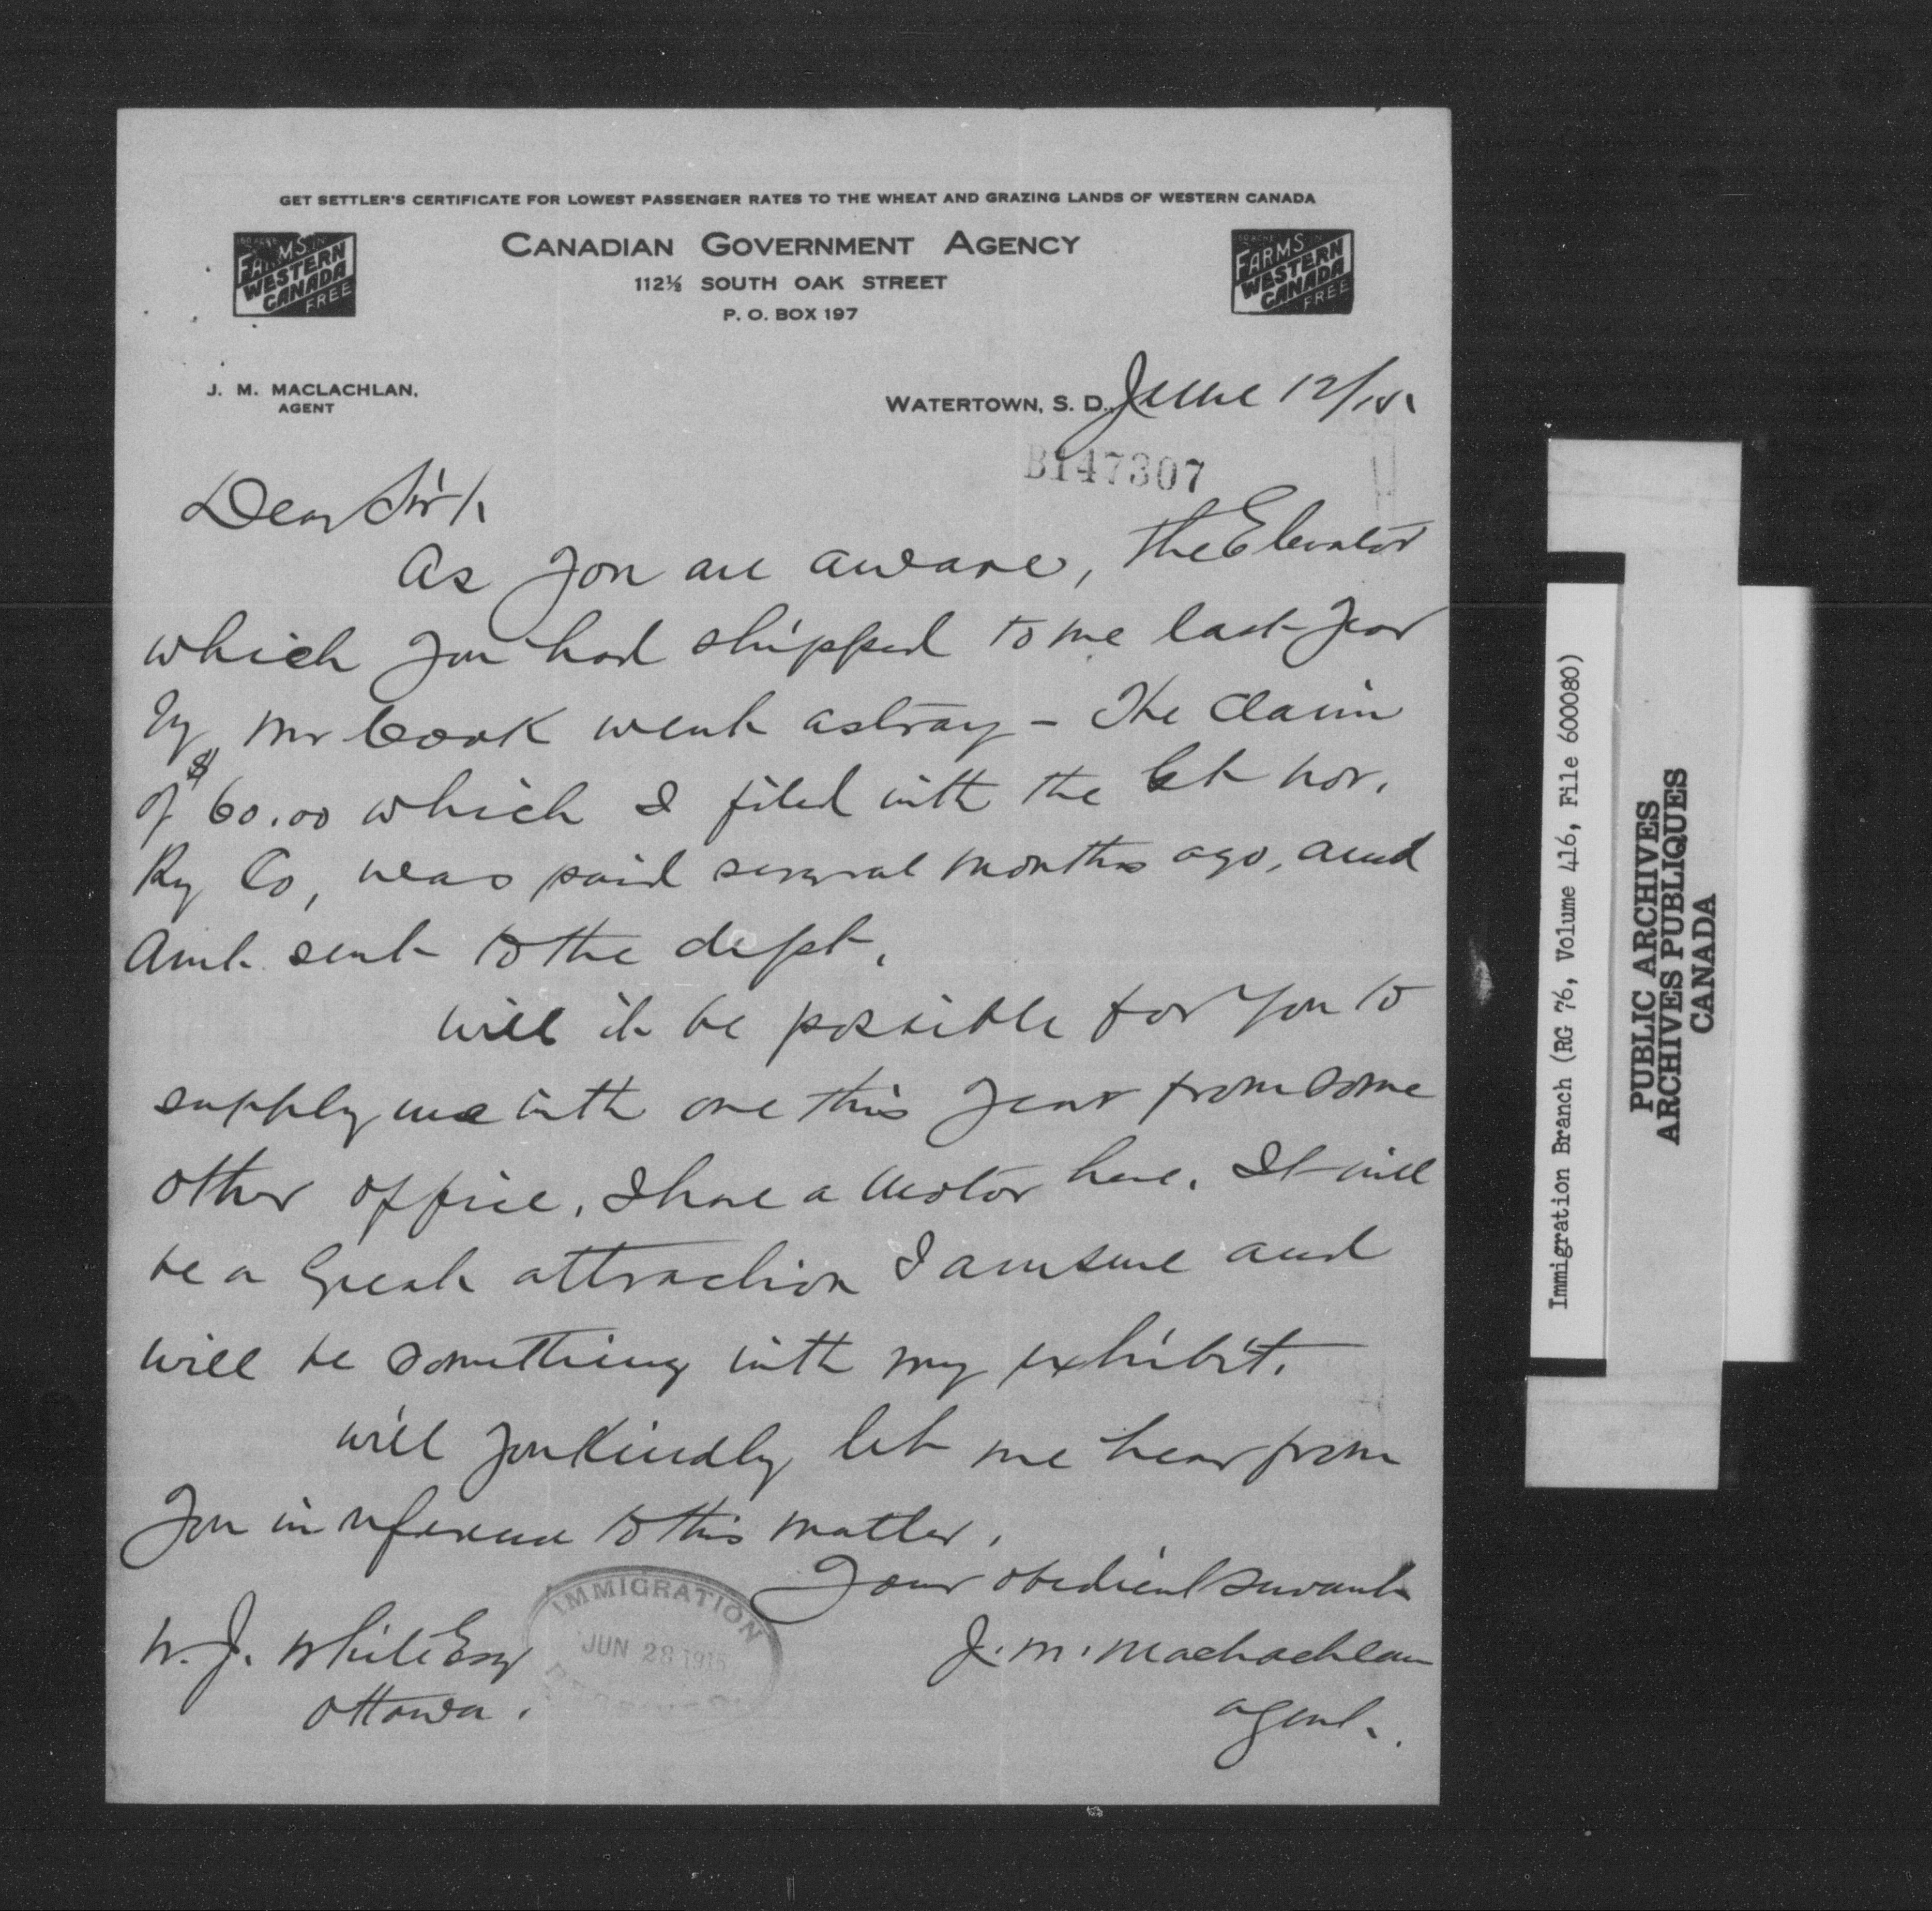 GET SETTLER'S CERTIFICATE FOR LOWEST PASSENGER RATES TO THE WHEAT AND GRAZING LANDS OF WESTERN CANADA
CANADIAN GOVERNMENT AGENCY
112½ SOUTH OAK STREET
P. O. BOX 197
FARMS IN
WESTERN
CANADA
FREE
160 ACRE
FARMS IN
WESTERN
CANADA
FREE
J. M. MACLACHLAN,
AGENT
WATERTOWN, S. D., June 12/15.
B147307
Dear Sir:
As you are aware, the Elevator
which you had shipped to me last year
by Mr Cook went astray - The claim
of $60.00 which I filed with the Gt Nor.
Ry Co, was paid several months ago, and
Amt. sent to the dept.
Will it be possible for you to
supply me with one this year from some
other office. I have a motor here. It will
be a great attraction I am sure and
will be something with my exhibit.
Will you kindly let me hear from
you in reference to this matter.
Your obedient servant
J. M. MacLachlan
agent.
W. J. White Esq
Ottawa.
IMMIGRATION
JUN 28 1915
Immigration Branch (RG 76, Volume 416, File 600080)
PUBLIC ARCHIVES
ARCHIVES PUBLIQUES
CANADA